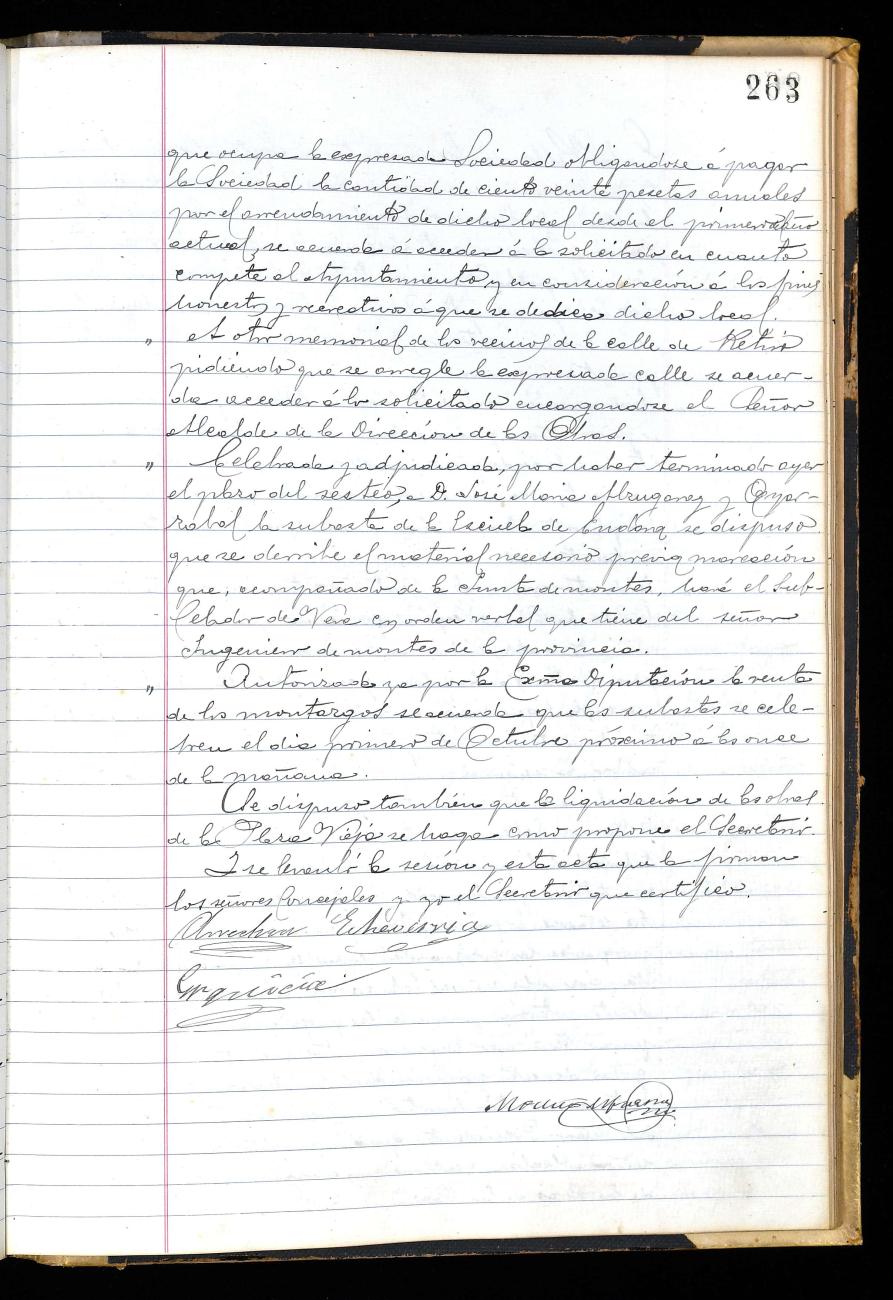 263
que ocupa la expresada Sociedad obligandose á pagar
la Sociedad la cantidad de ciento veinte pesetas anuales
por el arrendamiento de dicho local desde el primero año
actual, se acuerda á acceder á lo solicitado en cuanto
compete al Ayuntamiento y en consideración á los fines
honestos y recreativos á que se dedica dicho local.
" A otro memorial de los vecinos de la calle de Retiro
pidiendo que se arregle la expresada calle se acuer-
da acceder á lo solicitado encargandose el Señor
Alcalde de la Dirección de las Obras.
" Celebrada y adjudicada, por haber terminado ayer
el plazo del sesteo, a D. José Maria Alzugaray y Oyar-
zabal la subasta de la Escuela de se dispuso
que se derribe el material necesario previa marcación
que, acompañado de la Junta de montes, hará el Sub-
Celador de Vera en orden verbal que tiene del señor
Ingeniero de montes de la provincia.
" Autorizada ya por la Exma Diputación la venta
de los montazgos se acuerda que las subastas se cele-
bren el dia primero de Octubre próximo á las once
de la mañana.
Se dispuso también que la liquidación de las obras
de la Plaza Vieja se haga como propone el Secretario.
I se levantó la sesión y esta acta que la firman
los señores Concejales y yo el Secretario que certifico.
Echeverria